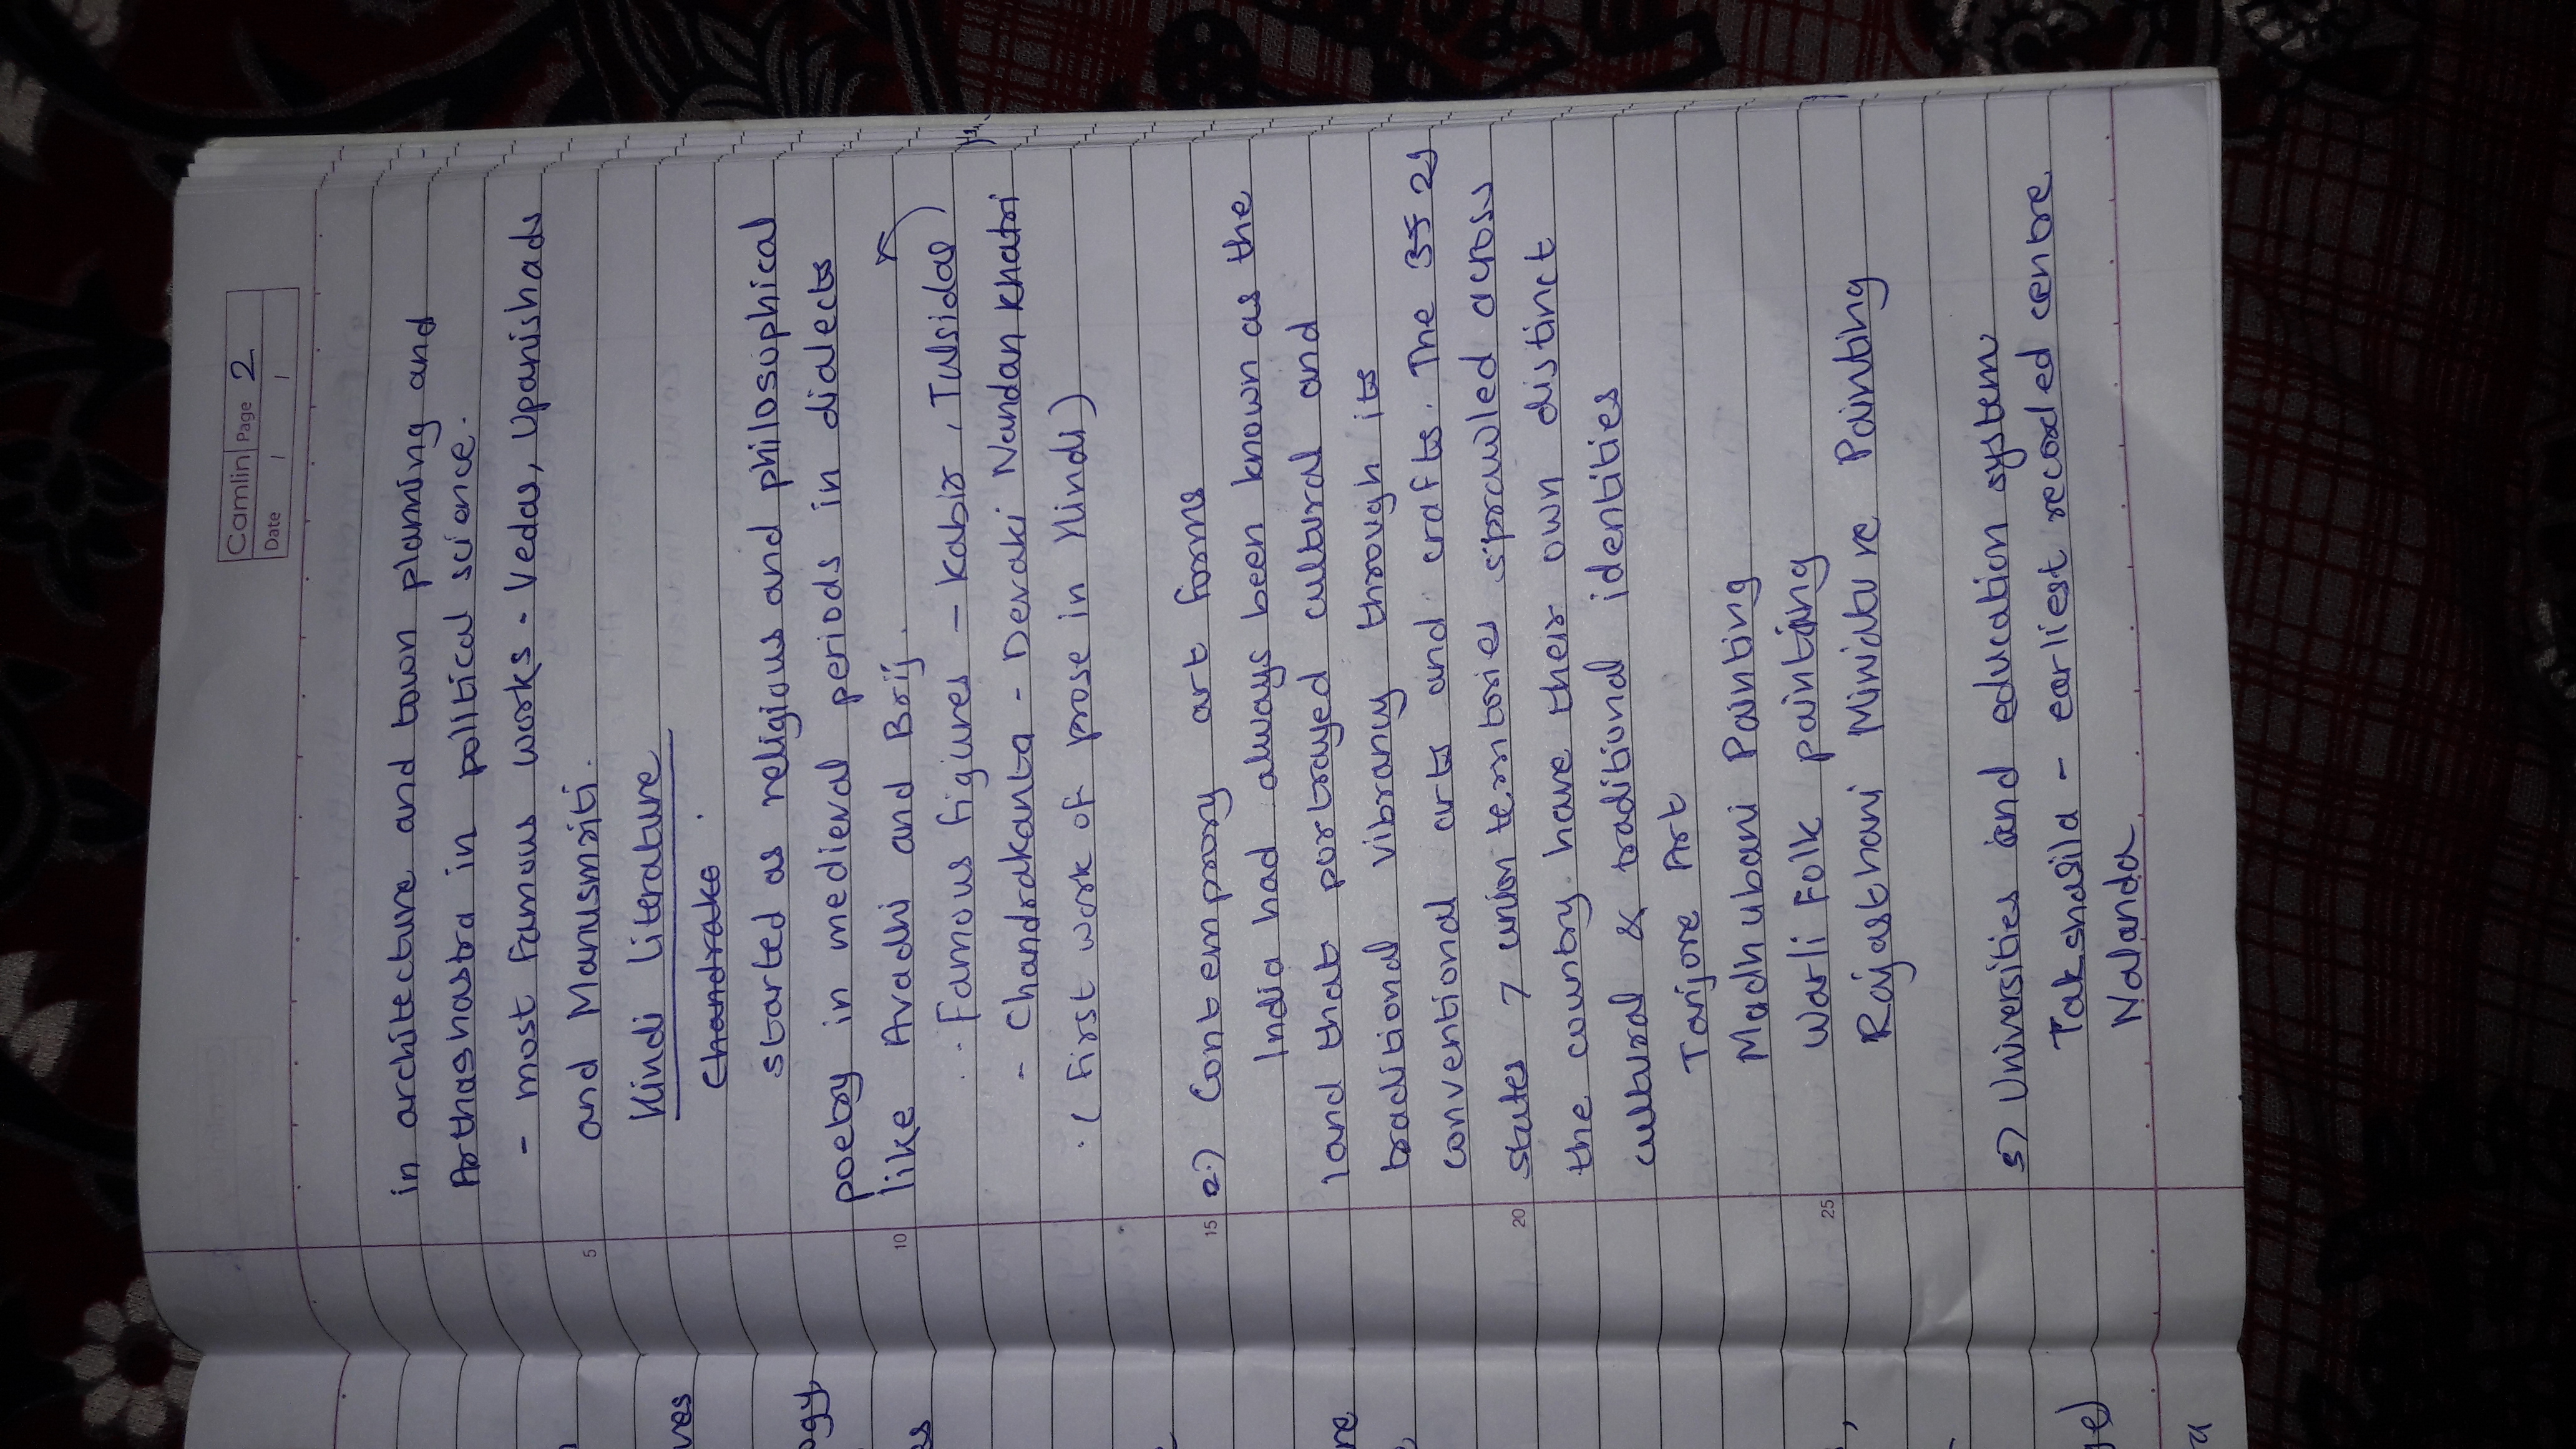 Camlin Page 2
Date / /
in architecture and town planning and
Arthashastra in political science.
- most famous works - Vedas, Upanishads
5 and Manusmriti.
Hindi Literature
Chandrako
started as religious and philosophical
poetry in medieval periods in dialects
10 like Avadhi and Brij.
- Famous figures - Kabir, Tulsidas
- Chandrakanta - Devaki Nandan Khatri
(first work of prose in Hindi)
15 2.) Contemprory art forms
India had always been known as the
land that portrayed cultural and
traditional vibrancy through its
conventional arts and crafts. The 35 29
20 states 7 union territories sprawled across
the country have their own distinct
cultural & traditional identities
Tanjore Art
Madhubani Painting
25 Warli Folk painting
Rajasthani Miniature Painting
3) Universities and education system
Takshasila - earliest recorded centre
Nalanda